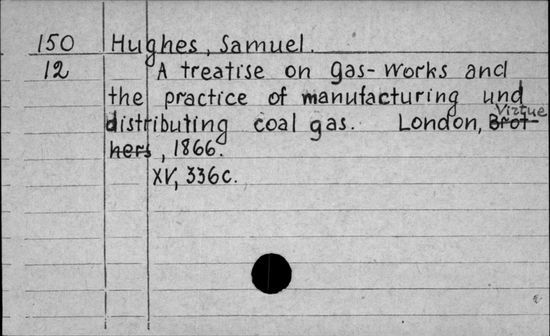 150 Hughes, Samuel.
12 A treatise on gas-works and
the practice of manufacturing und
distributing coal gas. London, Brot Virtue
hers, 1866.
XV, 336c.